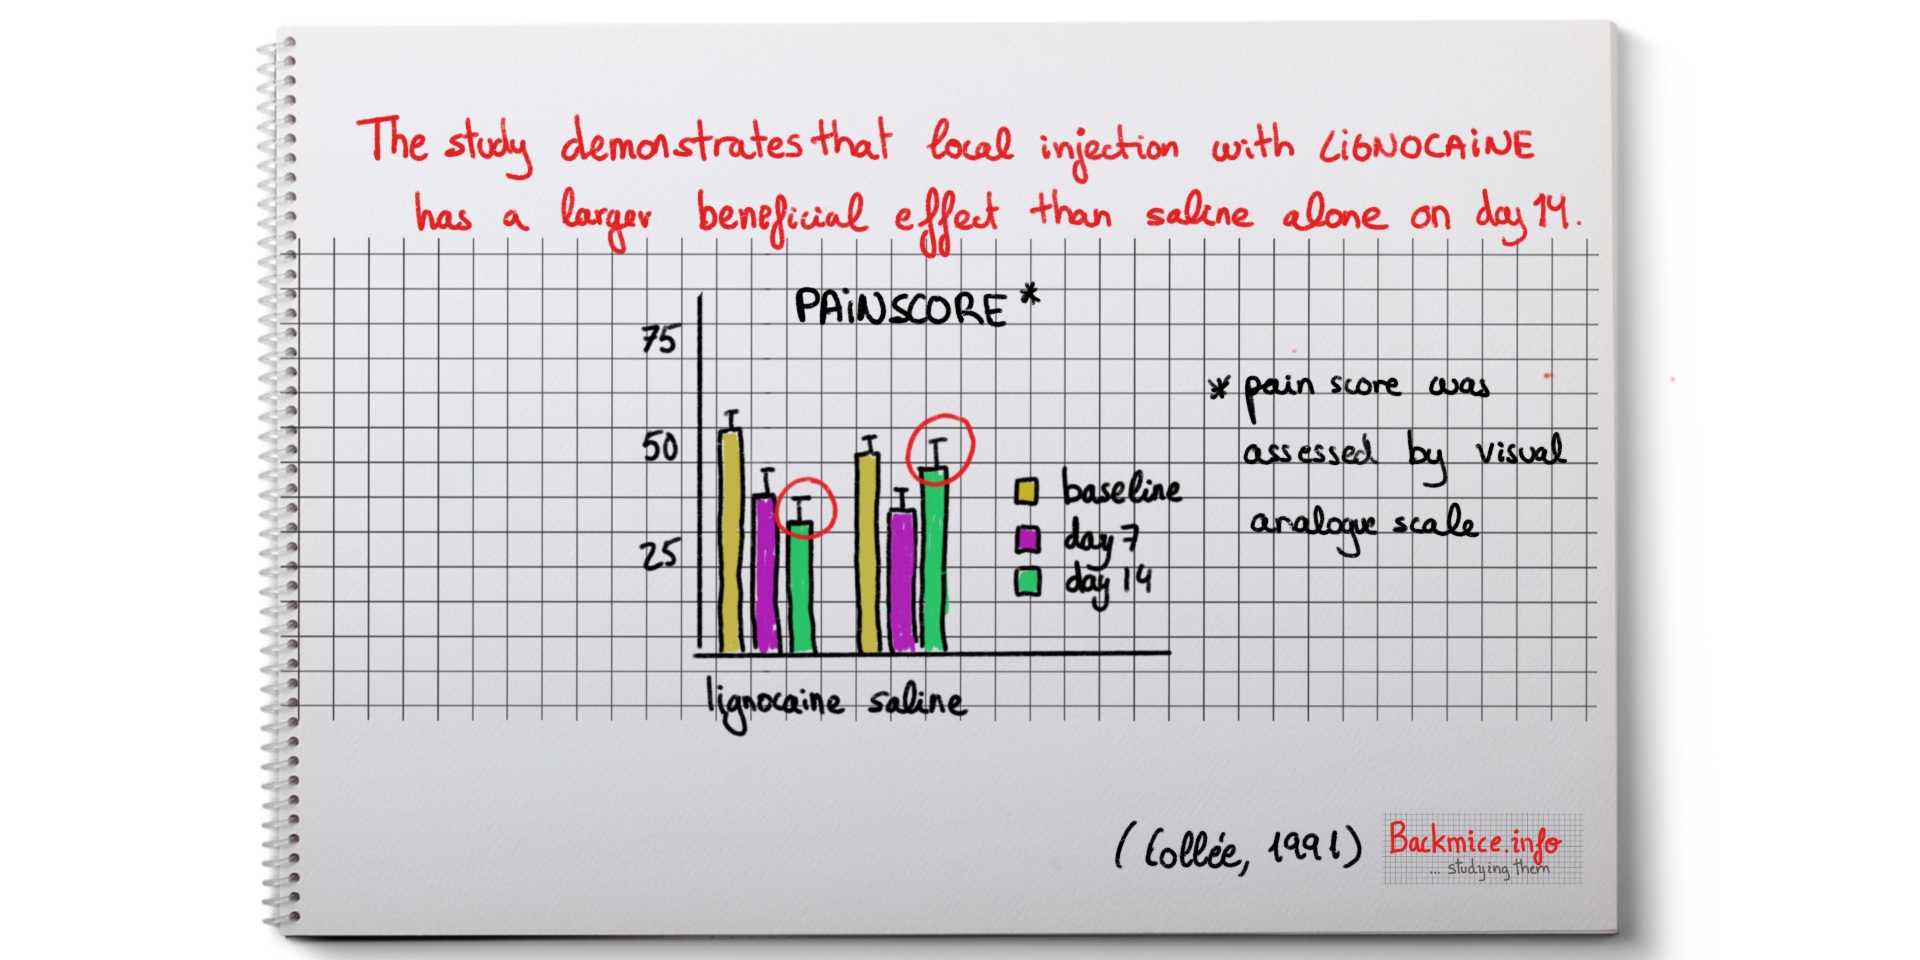 The study demonstrates that local injection with LiGNOCAiNE
has a larger beneficial effect than saline alone on day 14.
PAiNSCORE *
75
50
25
lignocaine saline
baseline
day 7
day 14
* pain score was
assessed by visual
analogue scale
(Collée, 1991)
Backmice.info
... studying them